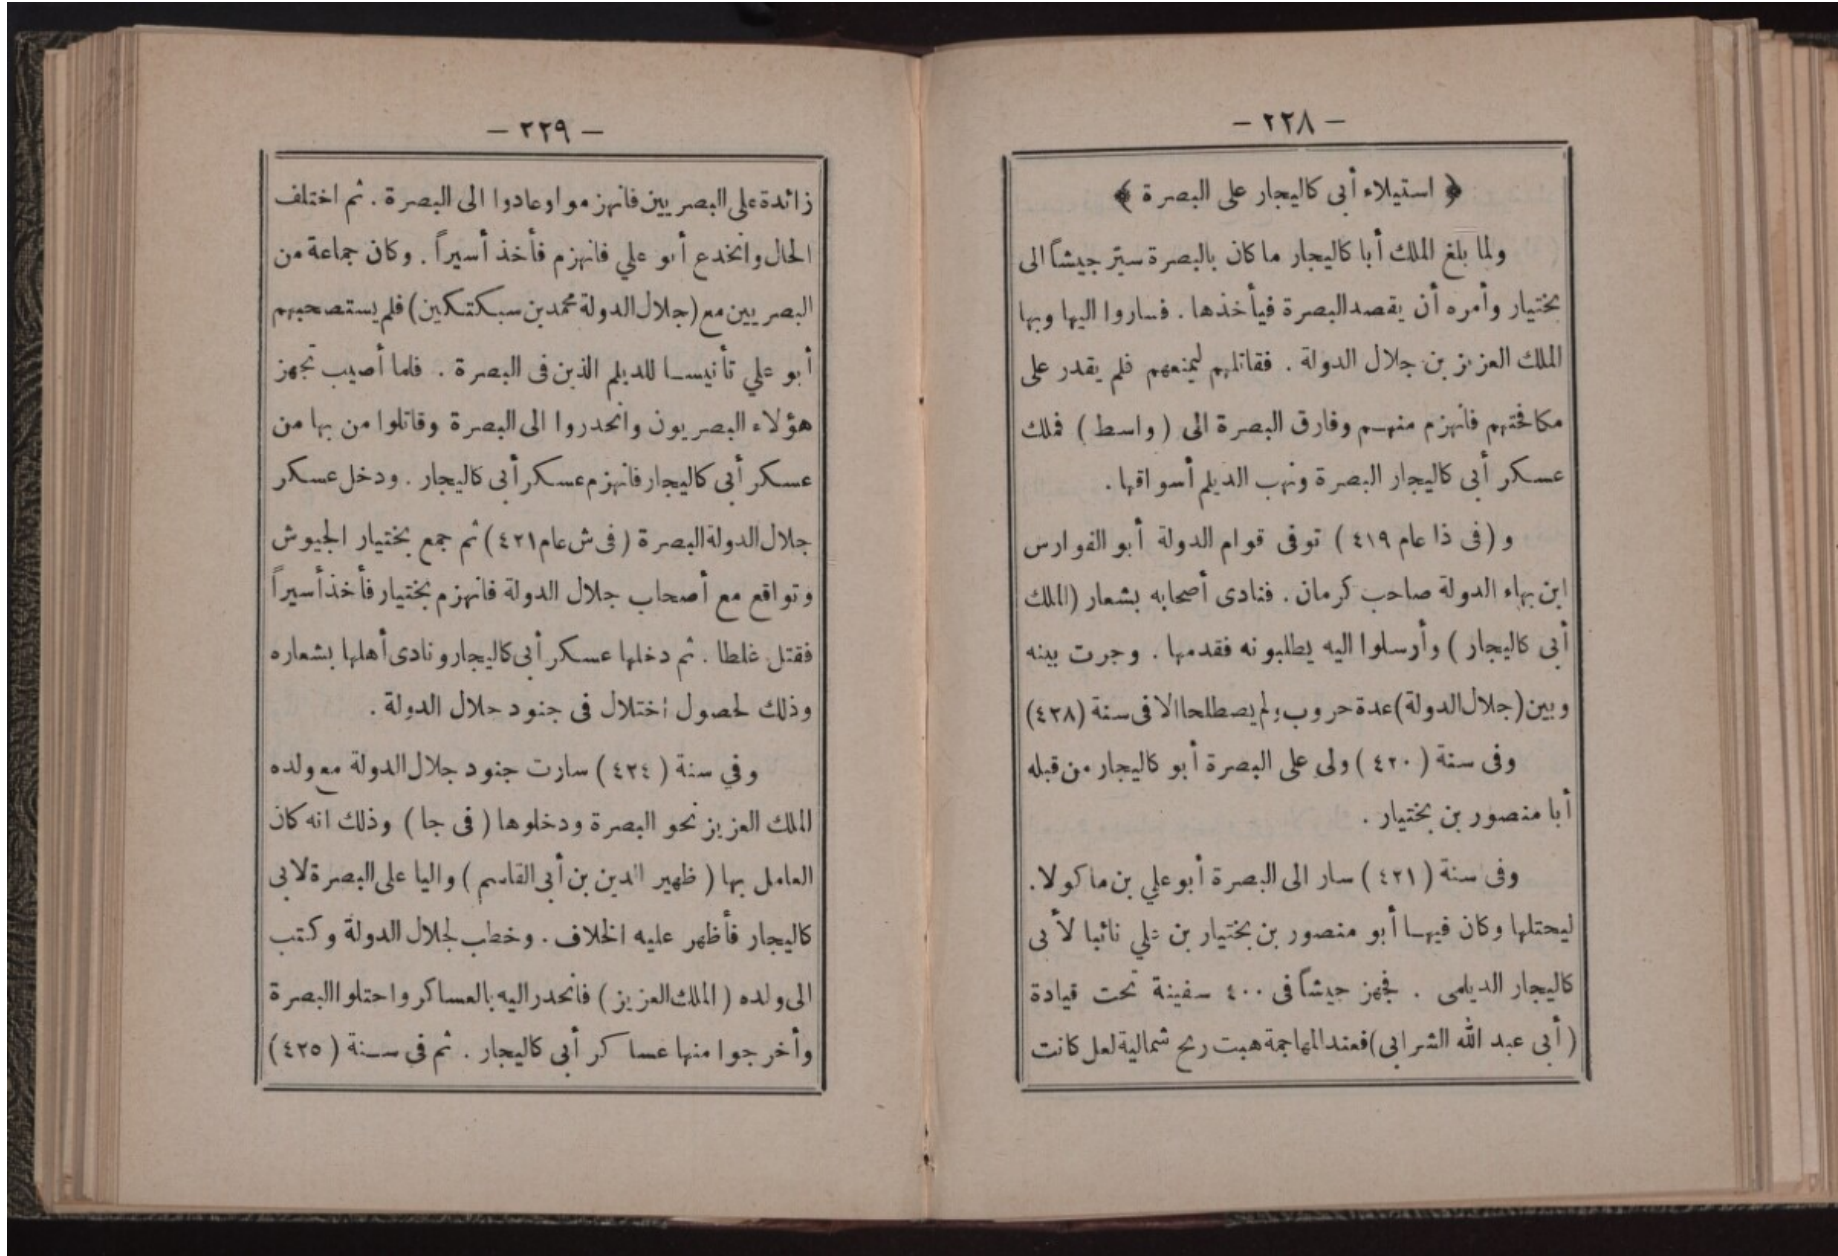 — ٢٢٨ —
﴿ استيلاء أبى كاليجار على البصرة ﴾
ولما بلغ الملك أبا كاليجار ما كان بالبصرة سيّر جيشاً الى
بختيار وأمره أن يقصد البصرة فيأخذها . فساروا اليها وبها
الملك العزيز بن جلال الدولة . فقاتلهم ليمنعهم فلم يقدر على
مكافحتهم فانهزم منهم وفارق البصرة الى ( واسط ) فملك
عسكر أبى كاليجار البصرة ونهب الديلم أسواقها .
و ( فى ذا عام ٤١٩ ) توفى قوام الدولة أبو الفوارس
ابن بهاء الدولة صاحب كرمان . فنادى أصحابه بشعار ( الملك
أبى كاليجار ) وأرسلوا اليه يطلبونه فقدمها . وجرت بينه
وبين ( جلال الدولة ) عدة حروب ولم يصطلحا الا فى سنة (٤٢٨)
وفى سنة ( ٤٢٠ ) ولى على البصرة أبو كاليجار من قبله
أبا منصور بن بختيار .
وفى سنة ( ٤٢١ ) سار الى البصرة أبو علي بن ماكولا .
ليحتلها وكان فيها أبو منصور بن بختيار بن علي نائبا لأبى
كاليجار الديلمى . فجهز جيشاً فى ٤٠٠ سفينة تحت قيادة
( أبى عبد الله الشرابى ) فعند المهاجمة هبت ريح شمالية لعل كانت
— ٢٢٩ —
زائدة على البصريين فانهزموا وعادوا الى البصرة . ثم اختلف
الحال وانخدع أبو علي فانهزم فأخذ أسيراً . وكان جماعة من
البصريين مع ( جلال الدولة محمد بن سبكتكين ) فلم يستصحبهم
أبو علي تأنيسا للديلم الذين فى البصرة . فلما أصيب تجهز
هؤلاء البصريون وانحدروا الى البصرة وقاتلوا من بها من
عسكر أبى كاليجار فانهزم عسكر أبى كاليجار . ودخل عسكر
جلال الدولة البصرة ( فى ش عام ٤٢١ ) ثم جمع بختيار الجيوش
وتواقع مع أصحاب جلال الدولة فانهزم بختيار فأخذ أسيراً
فقتل غلطا . ثم دخلها عسكر أبى كاليجار ونادى أهلها بشعاره
وذلك لحصول اختلال فى جنود جلال الدولة .
وفي سنة ( ٤٢٤ ) سارت جنود جلال الدولة مع ولده
الملك العزيز نحو البصرة ودخلوها ( فى جا ) وذلك انه كان
العامل بها ( ظهير الدين بن أبى القاسم ) واليا على البصرة لابى
كاليجار فأظهر عليه الخلاف . وخطب لجلال الدولة وكتب
الى ولده ( الملك العزيز ) فانحدر اليه بالعساكر واحتلوا البصرة
وأخرجوا منها عساكر أبى كاليجار . ثم فى سنة ( ٤٢٥ )